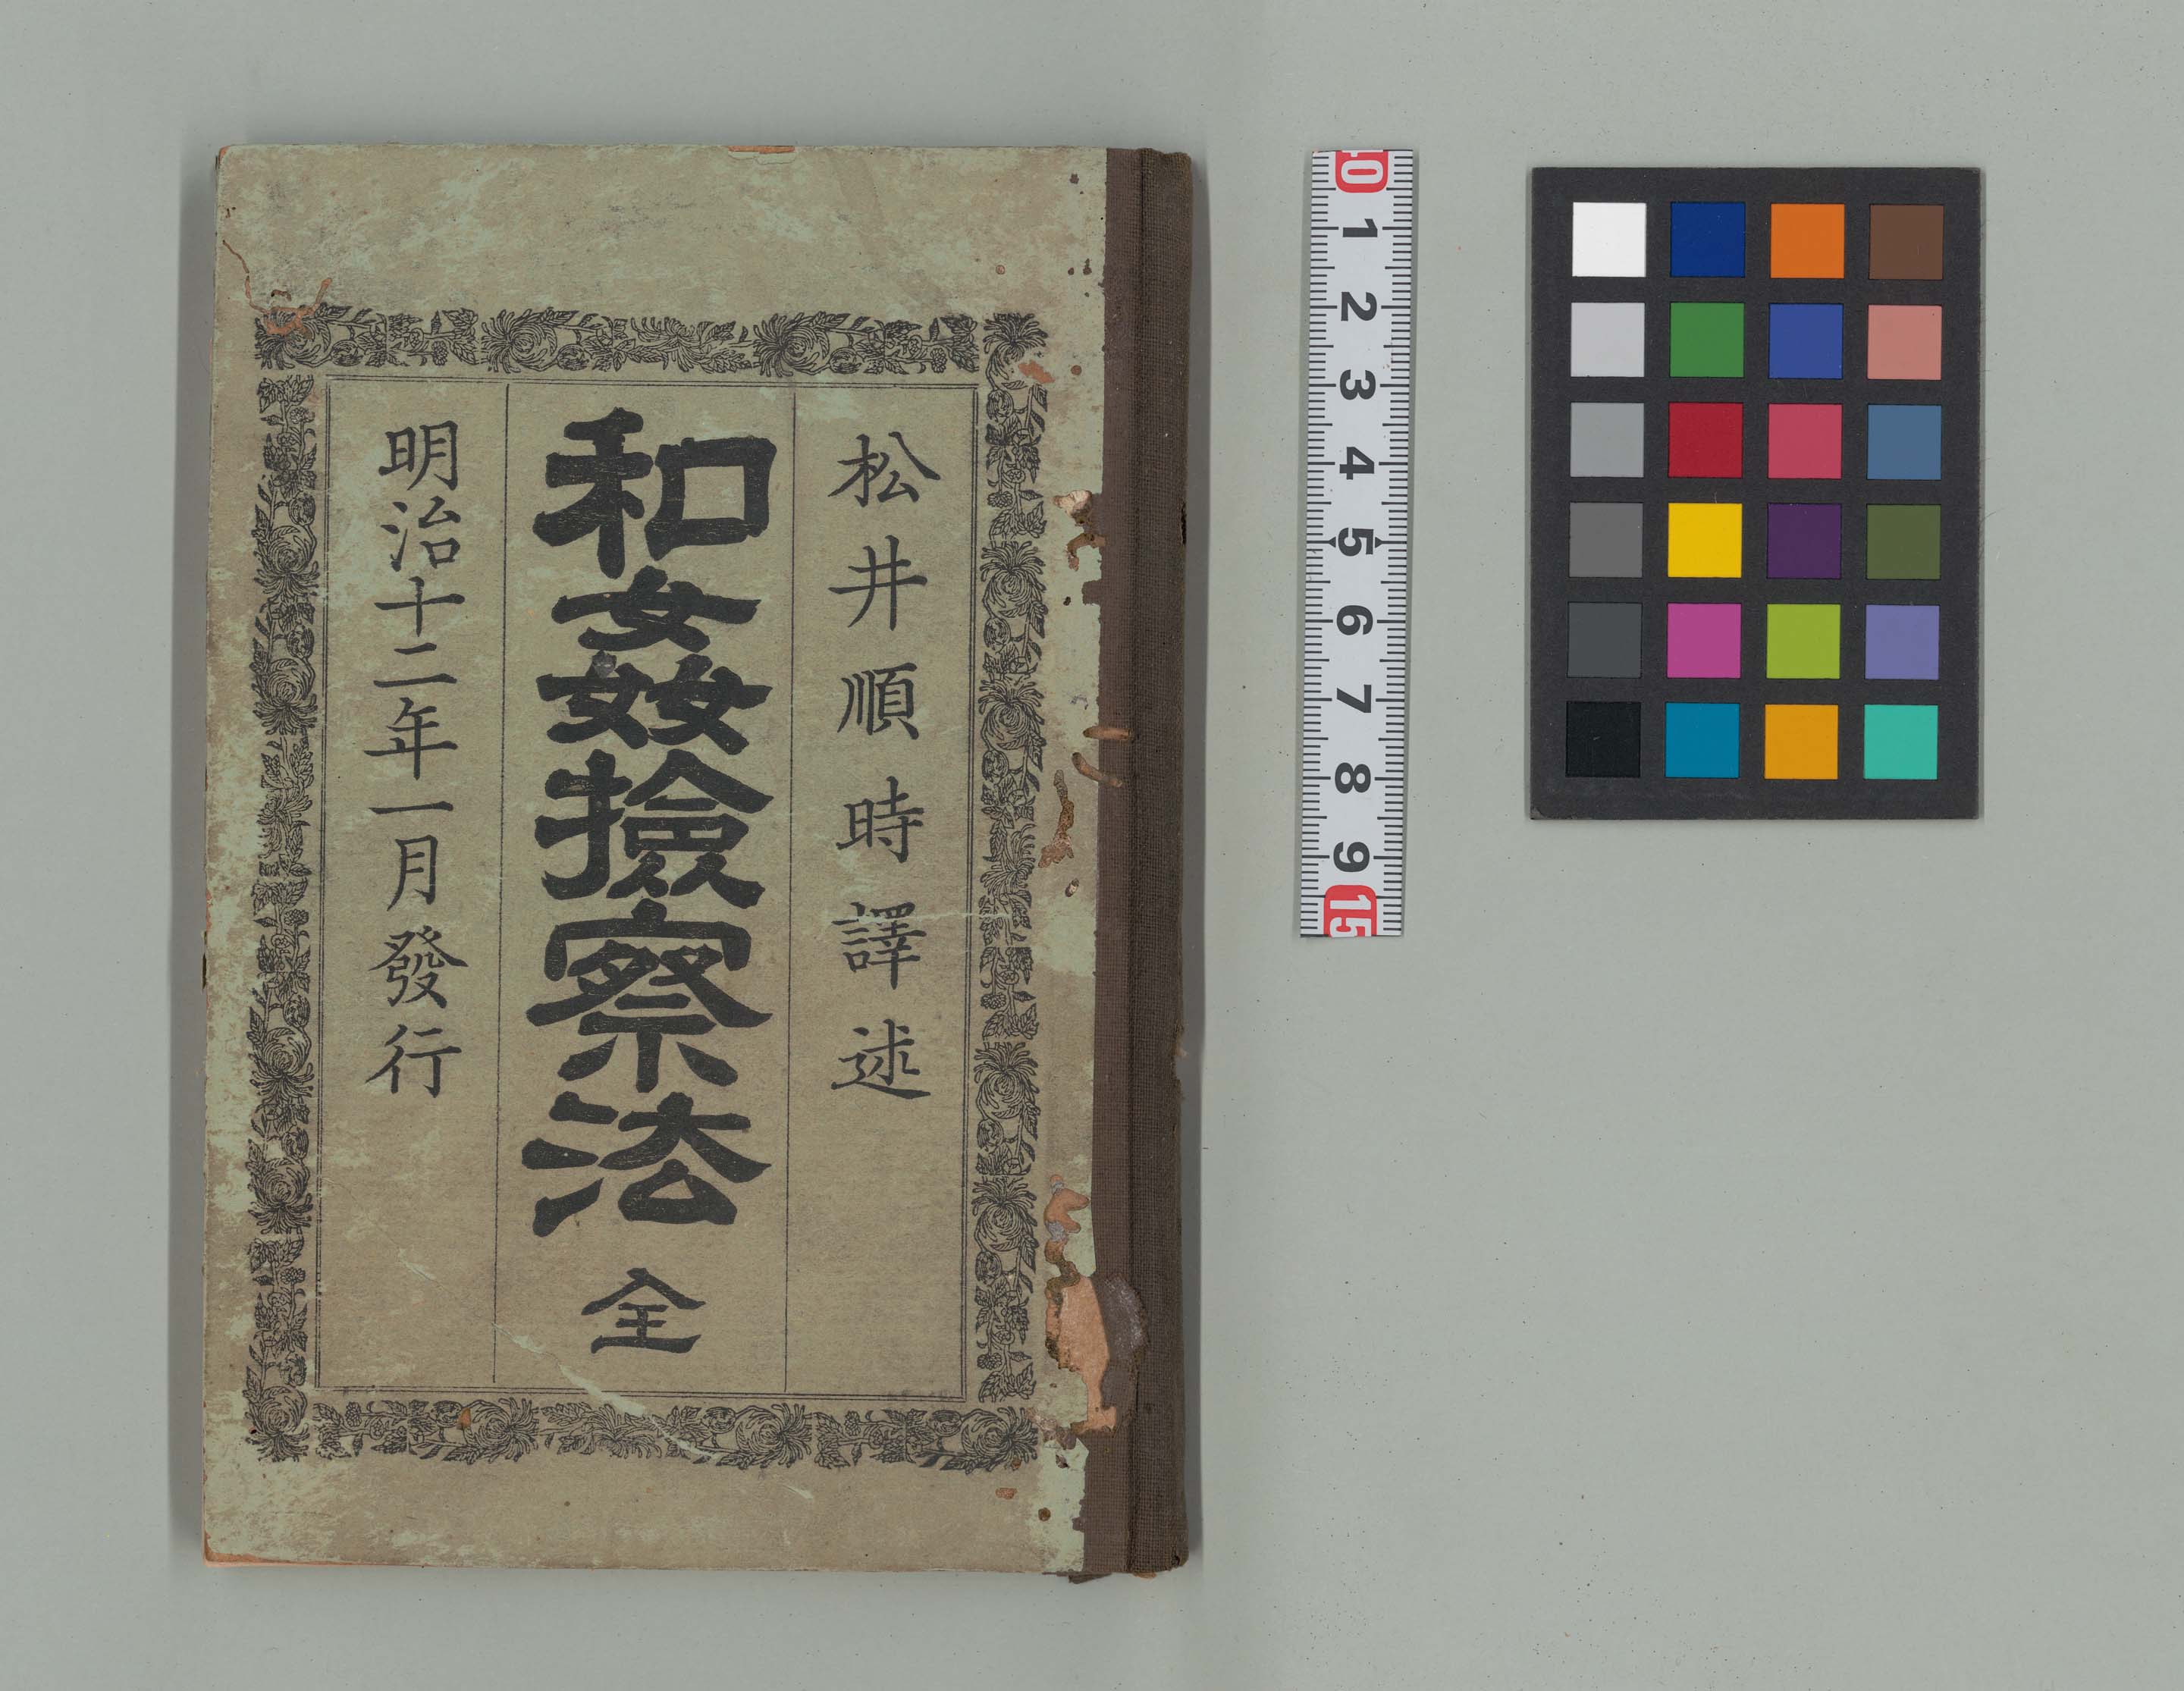 松井順時譯述
和姦撿察法 全
明治十二年一月發行
10
1
2
3
4
5
6
7
8
9
15